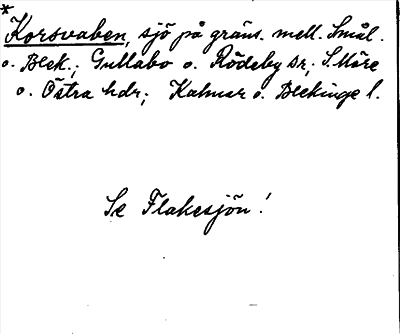 *
Korsvaben, sjö på gräns. mell. Smål.
o. Blek.; Gullabo o. Rödeby sr; S. Möre
o. Östra hdr; Kalmar o. Blekinge l.
Se Flakesjön!